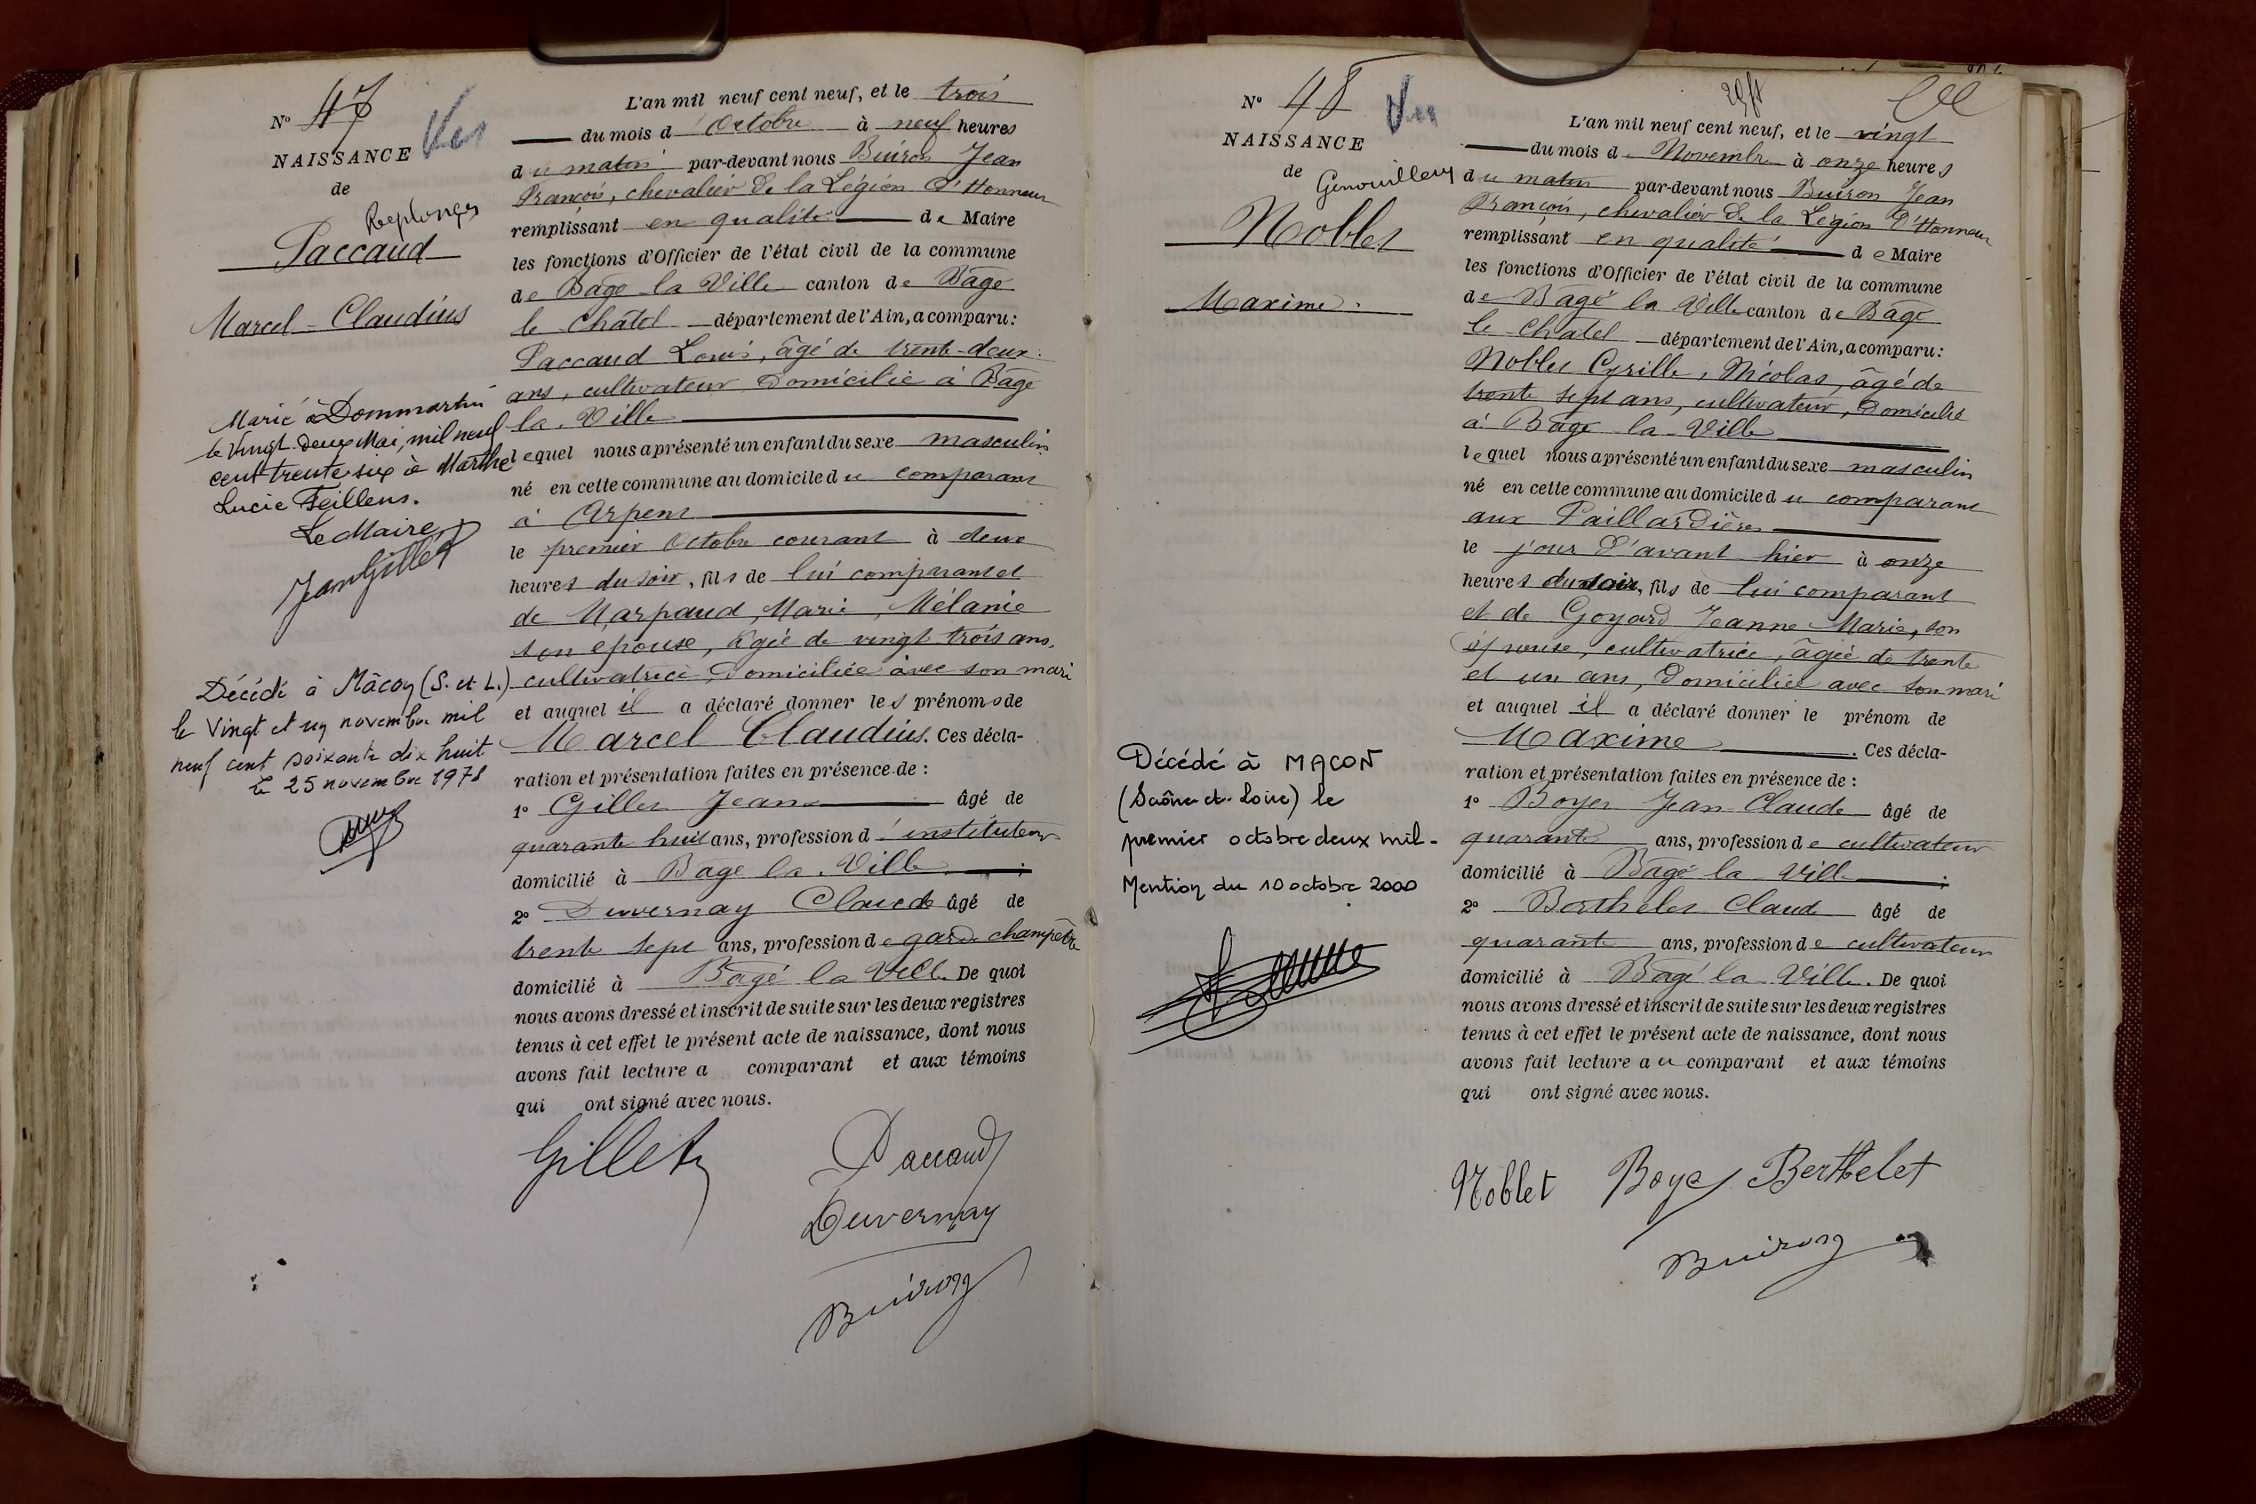 N° 47
Vu
NAISSANCE
de
Replonges
Paccaud
Marcel-Claudius
Marié à Dommartin
le Vingt-Deux Mai, mil neuf
cent trente six à Marthe
Lucie Feillens.
Le Maire
Jean Gillet
Décédé à Mâcon (S. et L.)
le Vingt et un novembre mil
neuf cent soixante dix huit
Le 25 novembre 1978
L'an mil neuf cent neuf, et le trois
du mois d'Octobre à neuf heures
du matin par-devant nous Buiron Jean
François, chevalier de la Légion d'Honneur
remplissant en qualité de Maire
les fonctions d'Officier de l'état civil de la commune
de Bâgé la Ville canton de Bâgé
le Châtel département de l'Ain, a comparu :
Paccaud Louis, âgé de trente-deux
ans, cultivateur domicilié à Bâgé
la Ville
lequel nous a présenté un enfant du sexe masculin
né en cette commune au domicile du comparant
à Arpent
le premier Octobre courant à deux
heures du soir, fils de lui comparant et
de Marpaud, Marie, Mélanie
son épouse, âgée de vingt trois ans,
cultivatrice, domiciliée avec son mari
et auquel il a déclaré donner les prénoms de
Marcel Claudius. Ces décla-
ration et présentation faites en présence de :
1° Gillet Jean âgé de
quarante huit ans, profession d'instituteur
domicilié à Bâgé la Ville ;
2° Duvernay Claude âgé de
trente sept ans, profession de garde champêtre
domicilié à Bâgé la Ville. De quoi
nous avons dressé et inscrit de suite sur les deux registres
tenus à cet effet le présent acte de naissance, dont nous
avons fait lecture a comparant et aux témoins
qui ont signé avec nous.
Gillet
Paccaud
Duvernay
Buiron
N° 48
Vu
NAISSANCE
de
Genouilleux
Noblet
Maxime.
Décédé à MACON
(Saône-et-Loire) le
premier octobre deux mil.
Mention du 10 octobre 2000
L'an mil neuf cent neuf, et le vingt
du mois de Novembre à onze heures
du matin par-devant nous Buiron Jean
François, chevalier de la Légion d'Honneur
remplissant en qualité de Maire
les fonctions d'Officier de l'état civil de la commune
de Bâgé la Ville canton de Bâgé
le Châtel département de l'Ain, a comparu :
Noblet Cyrille, Nicolas, âgé de
trente sept ans, cultivateur, domicilié
à Bâgé la Ville
lequel nous a présenté un enfant du sexe masculin
né en cette commune au domicile du comparant
aux Paillardières
le jour d'avant hier à onze
heures du soir, fils de lui comparant
et de Goyard Jeanne Marie, son
épouse, cultivatrice, âgée de trente
et un ans, domiciliée avec son mari
et auquel il a déclaré donner le prénom de
Maxime. Ces décla-
ration et présentation faites en présence de :
1° Boyer Jean Claude âgé de
quarante ans, profession de cultivateur
domicilié à Bâgé la Ville ;
2° Berthelet Claude âgé de
quarante ans, profession de cultivateur
domicilié à Bâgé la Ville. De quoi
nous avons dressé et inscrit de suite sur les deux registres
tenus à cet effet le présent acte de naissance, dont nous
avons fait lecture au comparant et aux témoins
qui ont signé avec nous.
Noblet Boyer Berthelet
Buiron